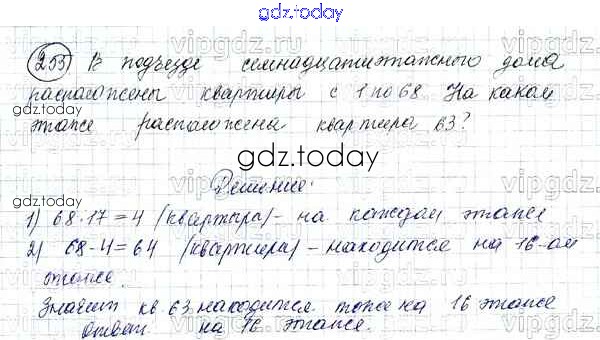 gdz.today
253 В подъезде семнадцатиэтажного дома
расположены квартиры с 1 по 68. На каком
этаже расположена квартира 63?
gdz.today
Решение:
1) 68:17=4 (квартира) - на каждом этаже
2) 68-4=64 (квартира) - находится на 16-ом
этаже.
Значит кв. 63 находится тоже на 16 этаже
Ответ на 16 этаже.
gdz.today